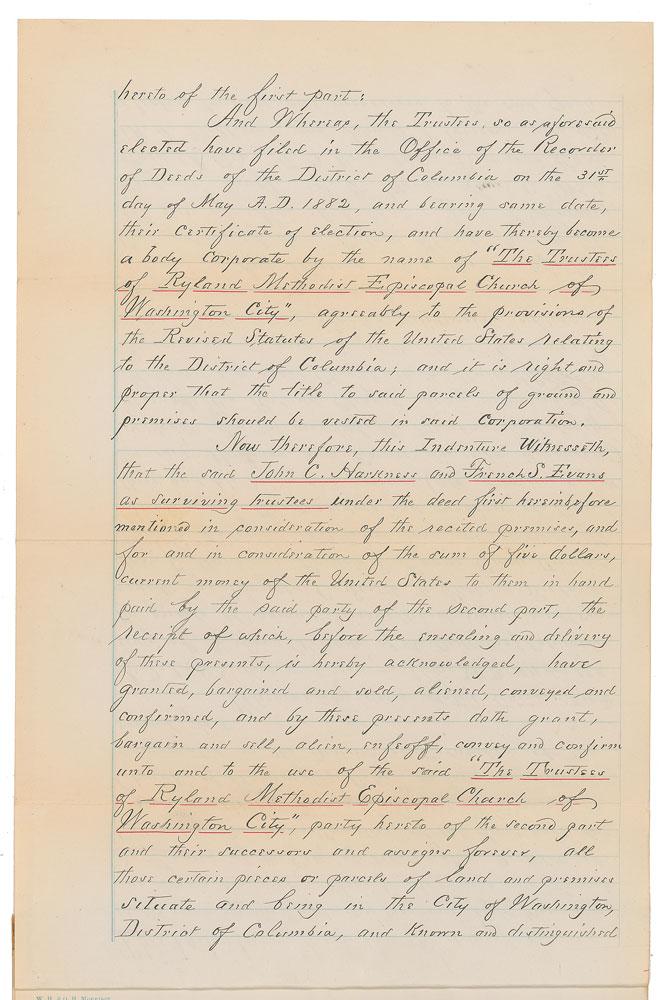 hereto of the first part:
And Whereas, the Trustees, so as aforesaid
elected have filed in the Office of the Recorder
of Deeds of the District of Columbia on the 31st
day of May A.D. 1882, and bearing same date,
their Certificate of election, and have thereby become
a body Corporate by the name of "The Trustees
of Ryland Methodist Episcopal Church of
Washington City", agreeably to the provisions of
the Revised Statutes of the United States relating
to the District of Columbia; and it is right and
proper that the title to said parcels of ground and
premises should be vested in said Corporation.
Now therefore, this Indenture Witnesseth,
that the said John C. Harkness and French S. Evans
as surviving trustees under the deed first hereinbefore
mentioned in consideration of the recited premises, and
for and in consideration of the sum of five dollars,
current money of the United States to them in hand
paid by the said party of the second part, the
receipt of which, before the ensealing and delivery
of these presents, is hereby acknowledged, have
granted, bargained and sold, aliened, conveyed and
confirmed, and by these presents doth grant,
bargain and sell, alien, enfeoff, convey and confirm
unto and to the use of the said "The Trustees
of Ryland Methodist Episcopal Church of
Washington City", party hereto of the second part
and their successors and assigns forever, all
those certain pieces or parcels of land and premises
situate and being in the City of Washington,
District of Columbia, and known and distinguished
W. H. & O. H. Morrison